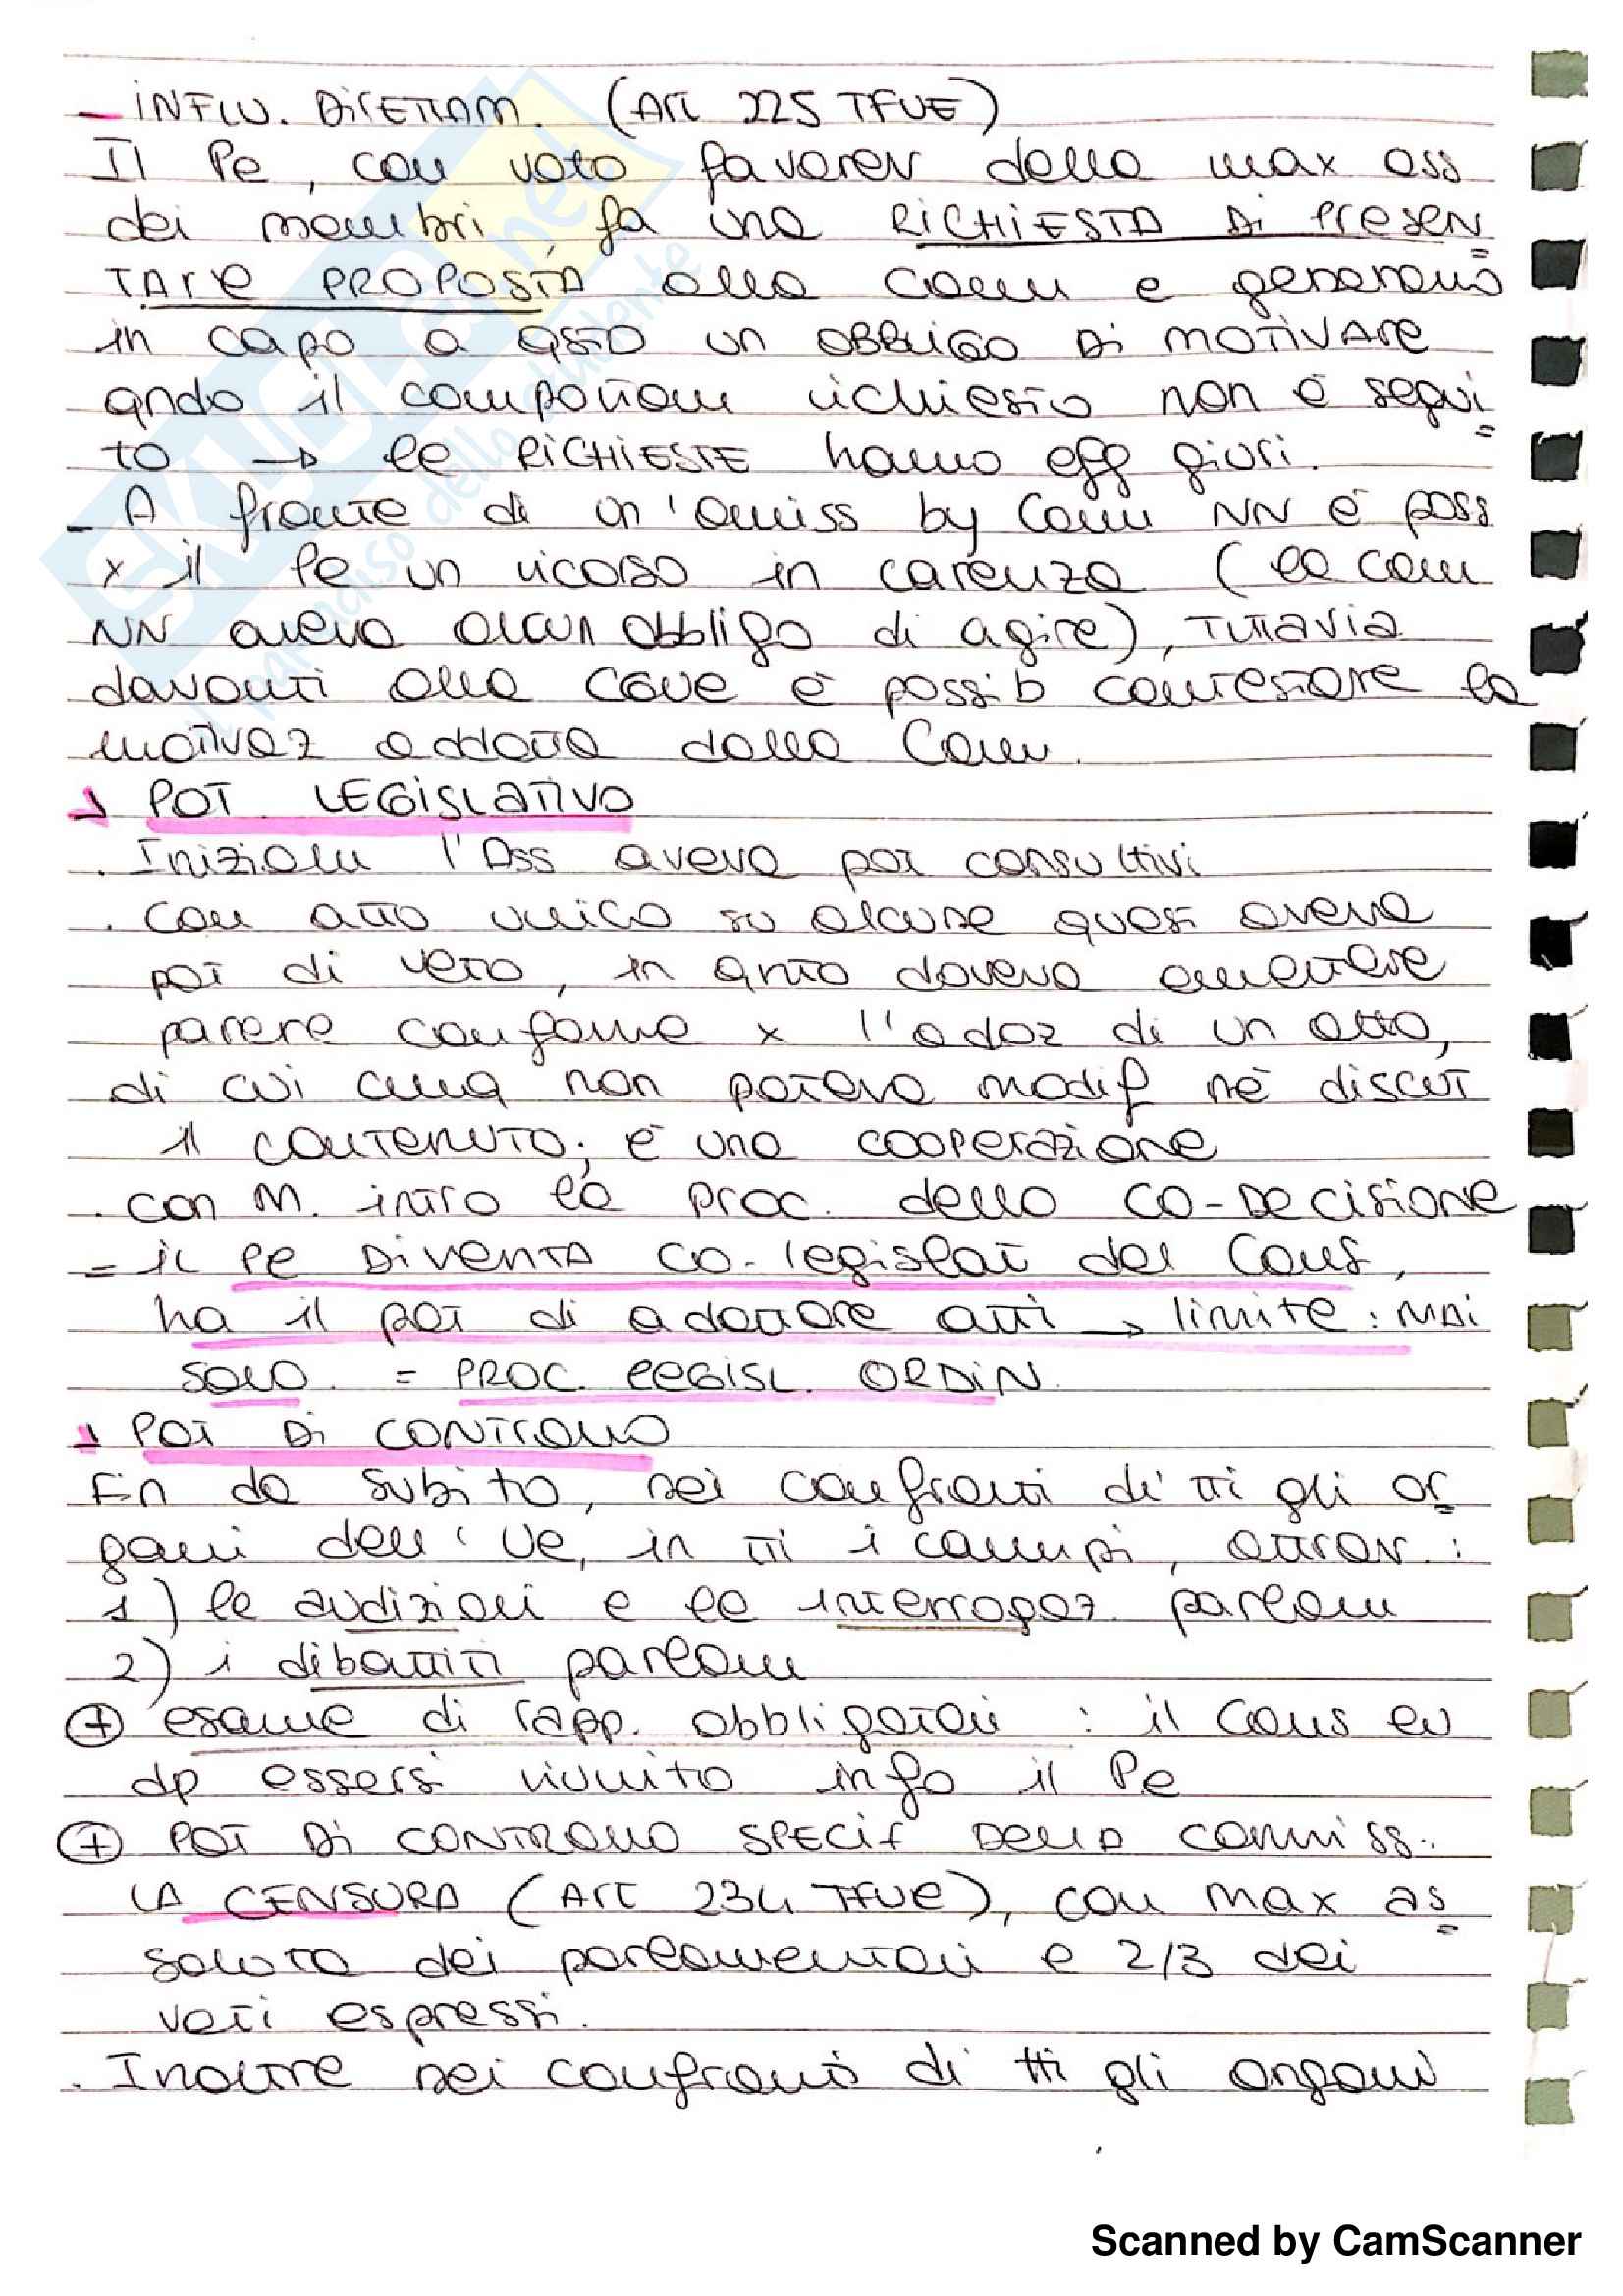 - INFLU. DIRETTAM. (ART 225 TFUE)
Il Pe, con voto favorev della max ass
dei membri, fa una RICHIESTA DI PRESEN
TARE PROPOSTA alla Comm e generano
in capo a qsta un OBBLIGO DI MOTIVARE
qndo il comportam richiesto non è segui
to → le RICHIESTE hanno eff giuri.
- A fronte di un'omiss by Comm NN è poss
x il Pe un ricorso in carenza (la com
NN aveva alcun obbligo di agire), TUTTAVIA
davanti alla CGUE è possib contestare la
motivaz addotta dalla Comm.
→ POT LEGISLATIVO
. Inizialm l'Ass aveva pot consultivi
. con atto unico su alcune quest aveva
pot di veto, in qnto doveva emettere
parere conforme x l'adoz di un atto,
di cui cmq non poteva modif né discut
il contenuto; è una COOPERAZIONE
. con M. intro la PROC. della CO-DECISIONE
= il PE DIVENTA CO-legislat del Cons,
ha il pot di adottare atti → limite: MAI
SOLO. = PROC. LEGISL. ORDIN.
→ POT DI CONTROLLO
Fin da subito, nei confronti di tti gli or
gani dell'Ue, in tti i campi, attrav:
1) le audizioni e le interrogaz parlam
2) i dibattiti parlam
+ esame di rapp. obbligatori: il Cons eu
dp essersi riunito info il Pe
+ POT DI CONTROLLO SPECIF DELLA COMMISS:
LA CENSURA (ART 234 TFUE), con max as
soluta dei parlamentari e 2/3 dei
voti espressi.
. Inoltre nei confronti di tti gli organi
SKUOLA.net
il paradiso dello studente
Scanned by CamScanner